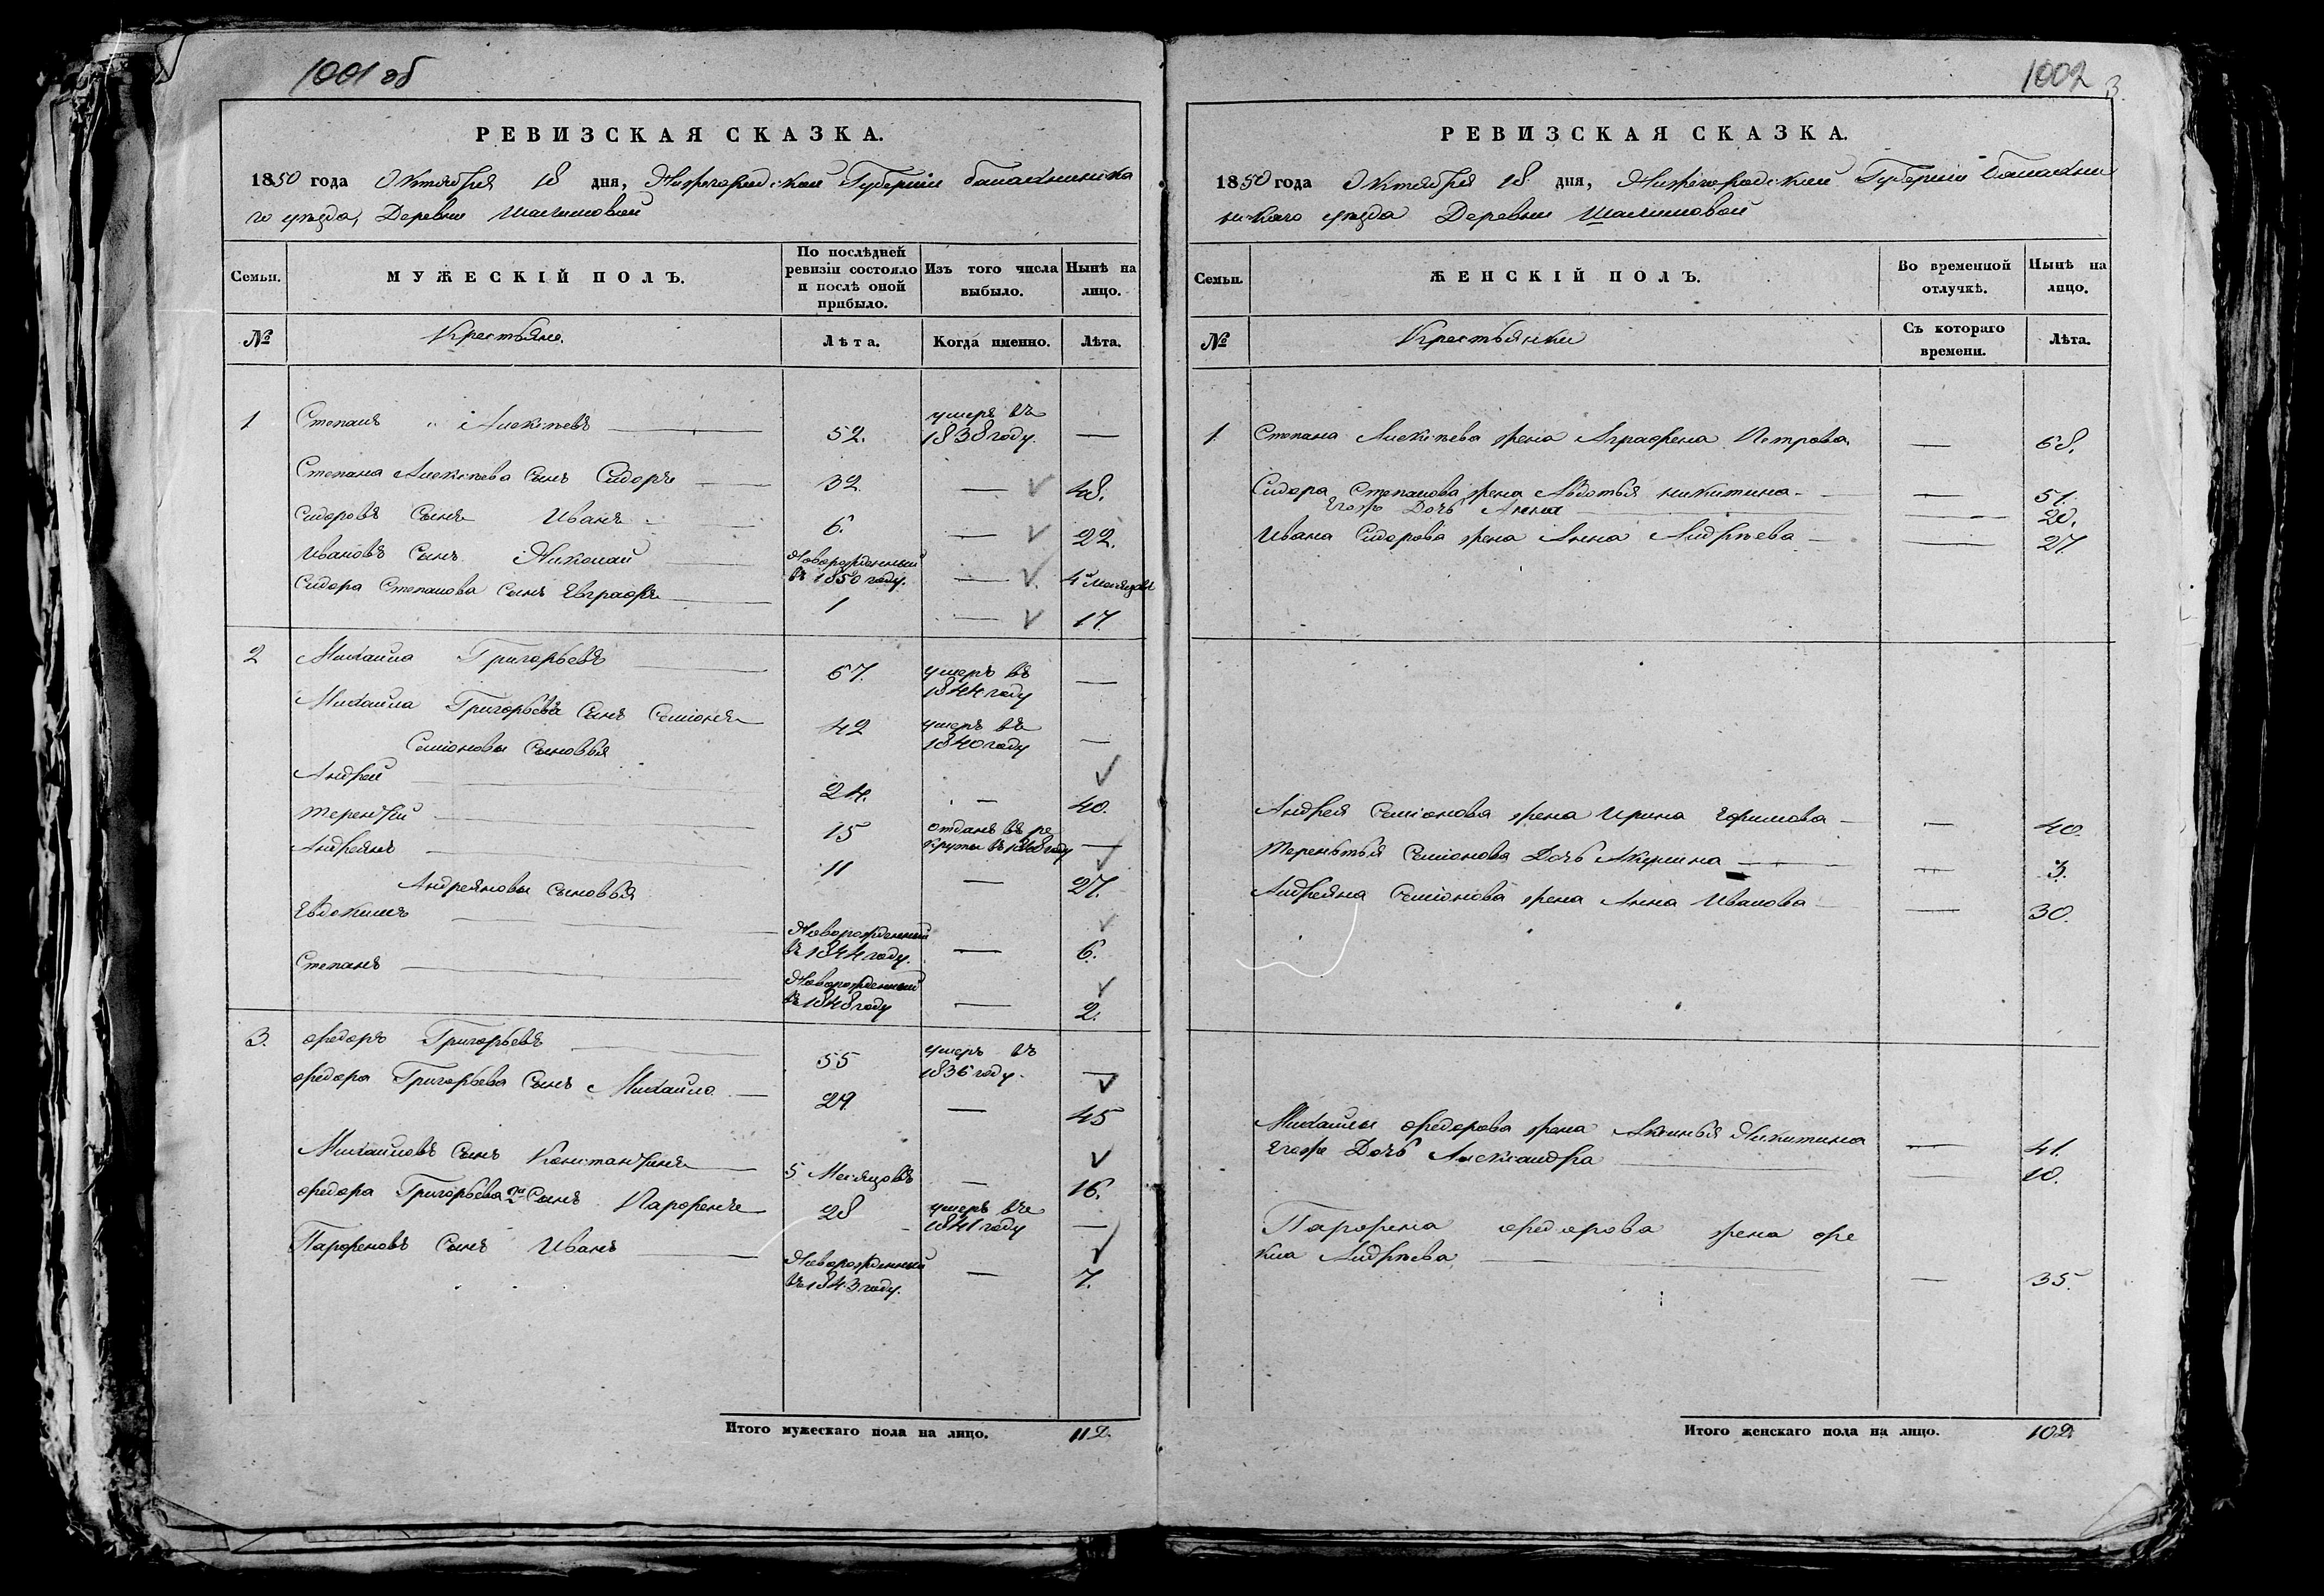 1001 об
РЕВИЗСКАЯ СКАЗКА.
1850 года Октября 18 дня, Нижегородской Губернии балахнинска
го уезда, Деревни
Семьи.
МУЖЕСКІЙ ПОЛЪ.
По послѣдней ревизіи состояло и послѣ оной прибыло.
Изъ того числа выбыло.
Нынѣ на лицо.
№
Крестьяне.
Лѣта.
Когда именно.
Лѣта.
1 Степанъ " Алексѣевъ 52. умеръ въ 1838 году. —
Степана Алексѣева Сынъ Сидоръ 32. — 48.
Сидоровъ Сынъ Иванъ 6. — 22.
Ивановъ Сынъ Николай Новорожденный въ 1850 году. — 4 месяцовъ
Сидора Степанова Сынъ Евграфъ 1 — 17.
2 Михайла Григорьевъ 67. умеръ въ 1844 году —
Михайла Григорьева Сынъ Семіонъ 42 умеръ въ 1840 году —
Семіоновы Сыновья
Андрей 24. — 40.
Терентий 15 отданъ въ рекруты въ 1848 году —
Андреянъ 11 — 27.
Андреяновы Сыновья
Евдокимъ Новорожденный въ 1844 году. — 6.
Степанъ Новорожденный въ 1848 году — 2.
3. Федоръ Григорьевъ 55 умеръ въ 1836 году. —
Федора Григорьева Сынъ Михайло 29 — 45
Михайловъ Сынъ Константинъ 5 Месяцовъ — 16.
Федора Григорьева 2й Сынъ Парфенъ 28 умеръ въ 1841 году —
Парфеновъ Сынъ Иванъ Новорожденный въ 1843 году. — 7.
Итого мужескаго пола на лицо. 11
1002
3
РЕВИЗСКАЯ СКАЗКА.
1850 года Октября 18 дня, Нижегородской Губерніи балахни
нскаго уезда Деревни
Семьи.
ЖЕНСКІЙ ПОЛЪ.
Во временной отлучкѣ.
Нынѣ на лицо.
№
Крестьянки
Съ котораго времени.
Лѣта.
1. Степана Алексѣева жена Аграфена Петрова — 68.
Сидора Степанова жена Авдотья никитина — 51.
Егож Дочь Анна — 20.
Ивана Сидорова жена Анна Андрѣева — 27
Андрея Семіонова жена Ирина Ефимова — 40
Терентья Семіонова Дочь Акулина — 3.
Андреяна Семіонова жена Анна Иванова — 30.
Михайлы Федорова жена Аксинья Никитина — 41.
Егож Дочь Александра — 10.
Парфена Федорова жена Фе
кла Андрѣева — 35.
Итого женскаго пола на лицо. 10